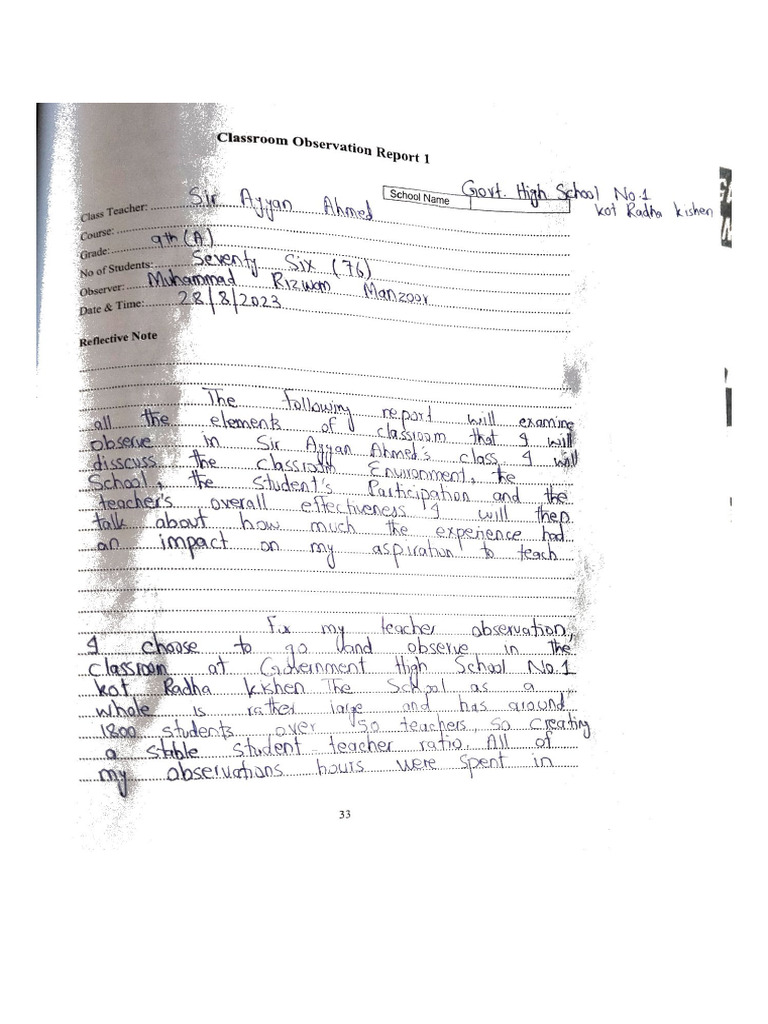 Classroom Observation Report 1
School Name
Govt. High School No.1
kot Radha kishen
Class Teacher: Sir Ayyan Ahmed
Course:
Grade: 9th (A)
No of Students: Seventy Six (76)
Observer: Muhammad Rizwan Manzoor
Date & Time: 28/8/2023
Reflective Note
The following report will examine
all the elements of classroom that I will
observe in Sir Ayyan Ahmed's class. I will
disscuss the classroom Environment, the
School, the Student's Participation and the
teacher's overall effectiveness I will then
talk about how much the experience had
an impact on my aspiration to teach
Fix my teacher observation,
I choose to go and observe in the
classroom at Government High School No.1
kot Radha kishen The School as a
whole is rather large and has around
1800 students over 50 teachers, so creating
a stable student teacher ratio. All of
my observations hours were spent in
33